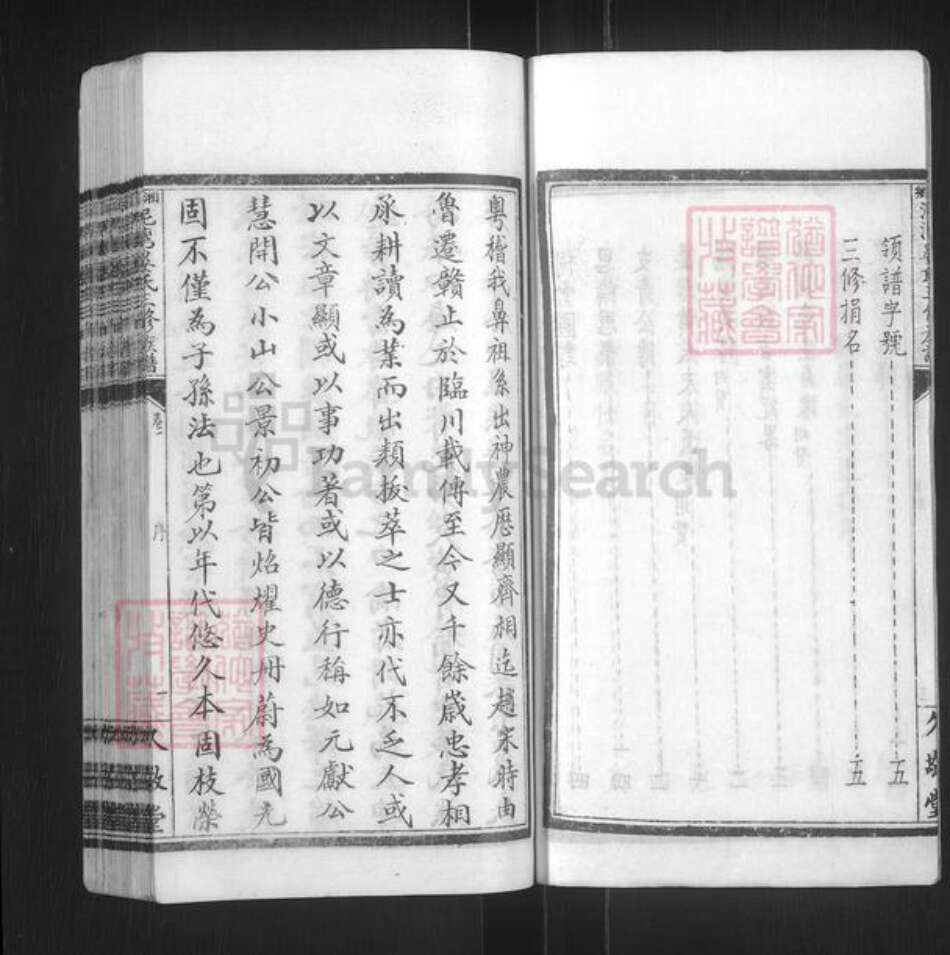 領譜字號 五
三修捐名 五
久敬堂
粤稽我鼻祖系出神農歷顯齊相迄趙宋時由
魯遷贛止於臨川載傳至今又千餘歲忠孝相
承耕讀為業而出類拔萃之士亦代不乏人或
以文章顯或以事功著或以德行稱如元獻公
慧開公小山公景初公皆炤燿史册蔚為國光
固不僅為子孫法也第以年代悠久本固枝榮
序
久敬堂
FamilySearch